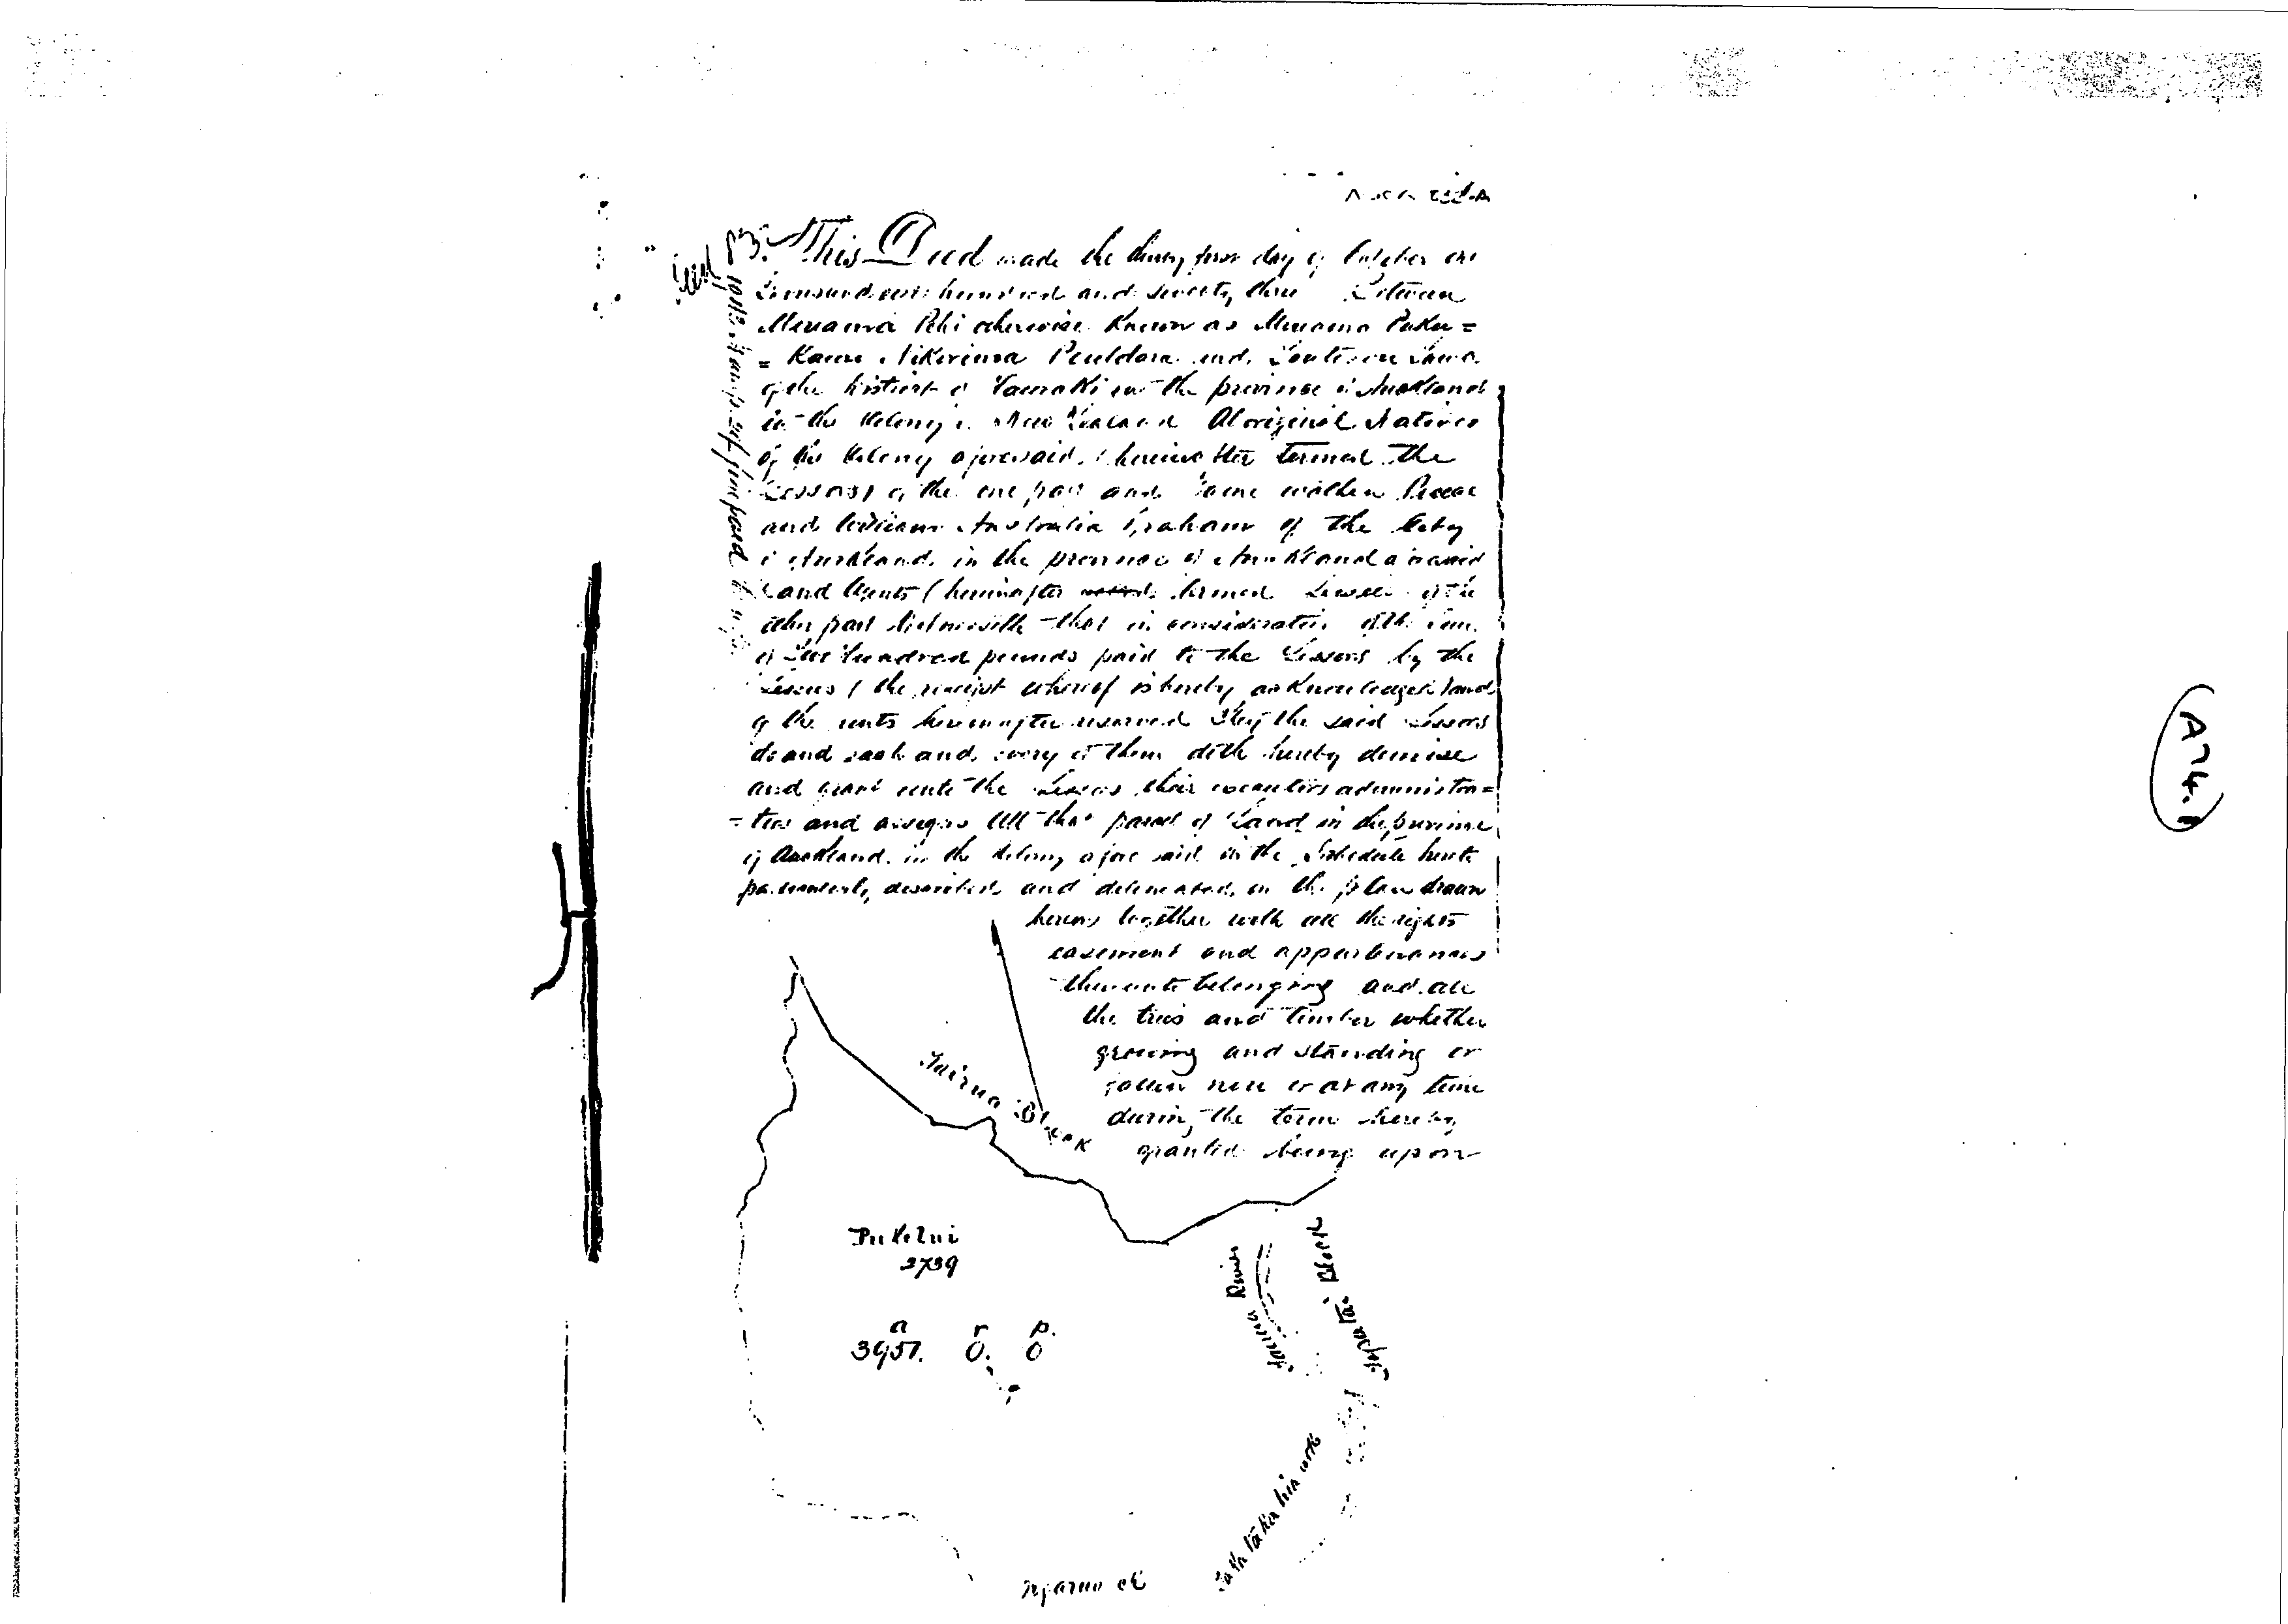 This Deed made the thirty first day of October one
Thousand eight hundred and seventy three Between
Meriama Pehi otherwise Known as Meriama Puku =
= Kaore Nikorima and
of the District of Tauraki in the province of Auckland
in the Colony of New Zealand Aboriginal Natives
of the Colony aforesaid (hereinafter termed the
Lessors) of the one part and
and William Australia Graham of the City
of Auckland in the province of Auckland aforesaid
Land Agents (hereinafter termed Lessees) of the
other part Witnesseth that in consideration of the sum
of hundred pounds paid to the Lessors by the
Lessees (the receipt whereof is hereby acknowledged) and
of the rents hereinafter reserved They the said Lessors
do and each and every of them doth hereby demise
and grant unto the Lessees their executors administra=
=tors and assigns All that parcel of Land in the province
of Auckland in the Colony afore said in the Schedule hereto
particularly described and delineated on the plan drawn
hereon together with all the rights
easement and appurtenances
thereunto belonging and all
the trees and timber whether
growing and standing or
fallen now or at any time
during the term hereby
granted being upon
Tairua Block
Puketui
2739
a r p.
3957. 0. 0
Tairua River
Block
Ngaruo ck
(A74.1)